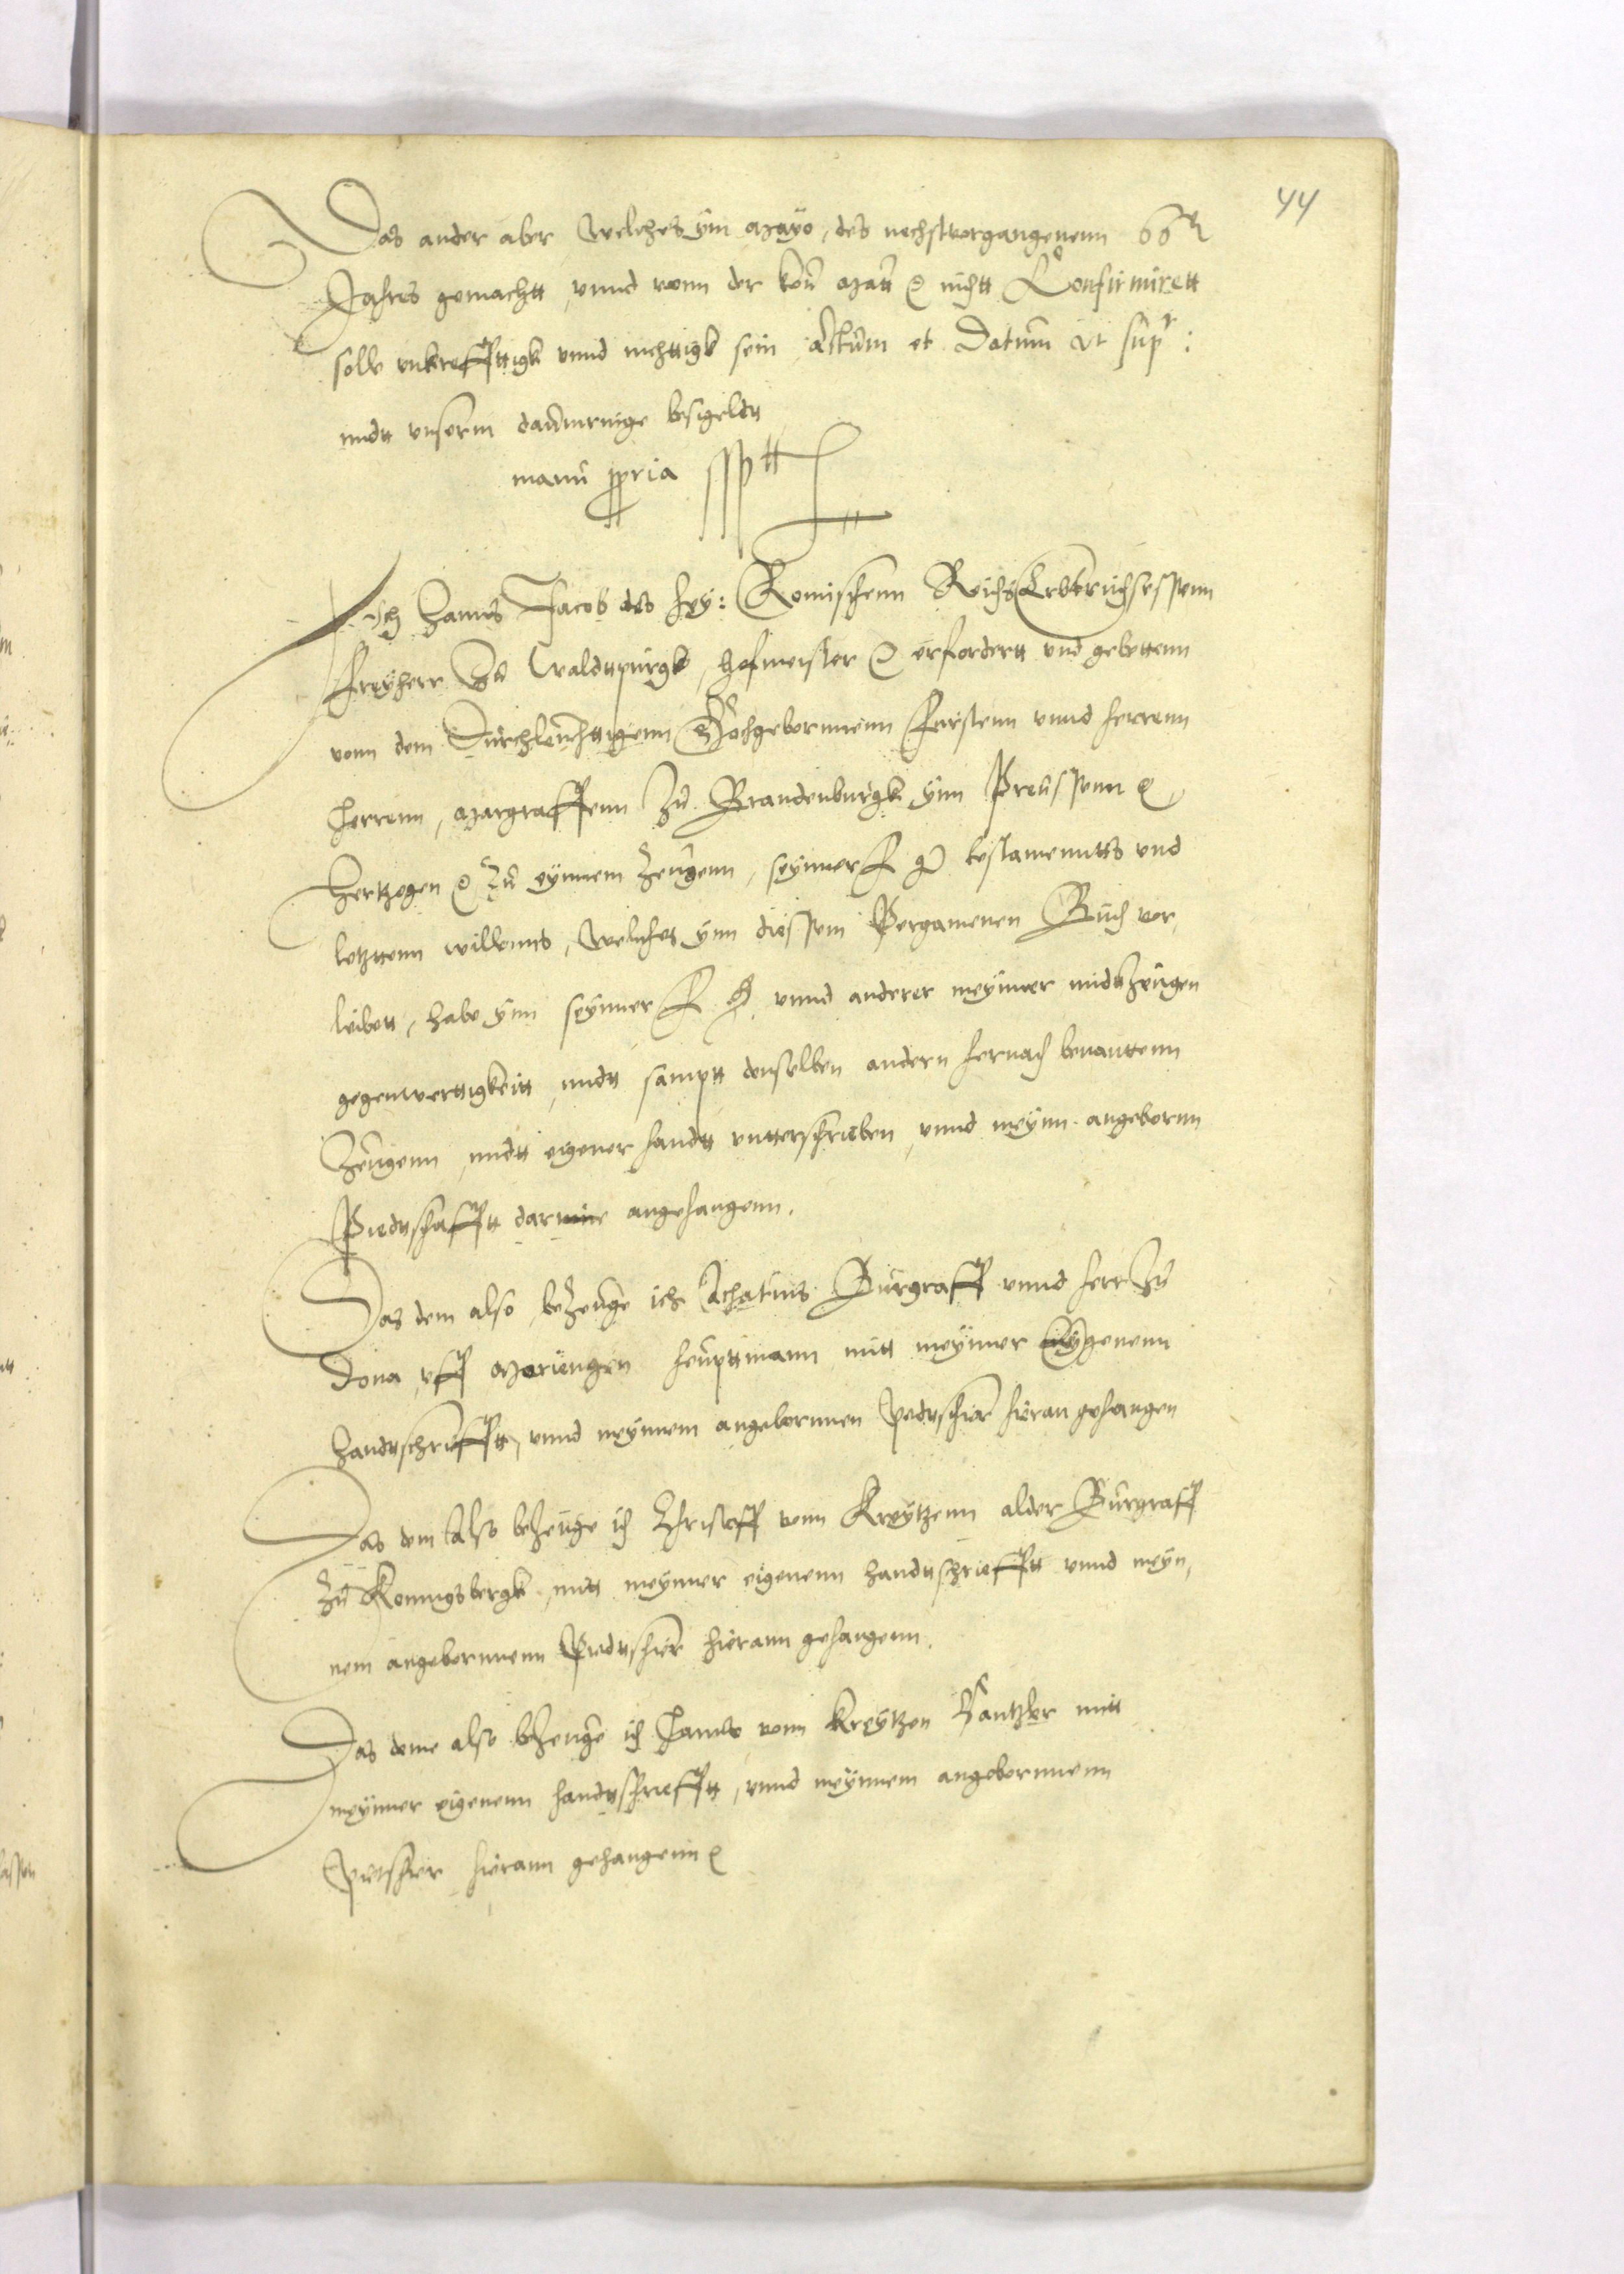 44
Das ander aber welches ÿm Mayo, des nechstvorgangenenn 66
Jahres gemachtt, vnnd vonn der kön Matt nichtt Confirmirett
solle vnkrefftigk vnnd nichttigk sein Actum et Datum vt sup:
midtt vnserm daumringe besigeldtt
manu ppria ssptt
Ich Hanns Jacob des hey: Romischenn Reichs Erbtruchsessenn
Freyherr Zu Waldttpurgk, hofmeister erfordertt vnd gebettenn
vonn dem Durchleuchttigenn Hochgebornnenn Furstenn vnnd herrenn
Herrenn, Margraffenn Zu Brandenburgk ÿnn Preussenn
Hertzogen Zu eynnem Zeugenn, seynner F G testamenntts vnd
letzttenn willenns, welches ÿnn diessem Pergamenen Buch vor,
leibett, habe ÿnn seynner F G vnnd anderer meynner midtzeugen
gegenwerttigkeitt, midtt samptt denselben andern hernach benanttenn
Zeugenn, midtt eigener handtt vntterschrieben, vnnd meynn angebornn
Piedttschafftt angehangenn.
Das dem also bezeuge ich Achatius Burgraff vnnd herr zu
Dona vff Morungen heupttmann mitt meynner eygenenn
handttschriefftt, vnnd meynnem angebornnen Pedtschier hieran gehangen
Das dem also bezeuge ich Christoff vonn Kreytzenn alder Burgraff
zu Konnigsbergk, mitt meynner eigenenn handttschriefftt vnnd meyn,
nem angebornnenn Piedttschier hierann gehangenn.
Das deme also bezeuge ich Hanns vonn Kreytzen Cantzler mitt
meynner eigenenn handttschriefftt, vnnd meynnem angebornnenn
Pitschier hierann gehangenn